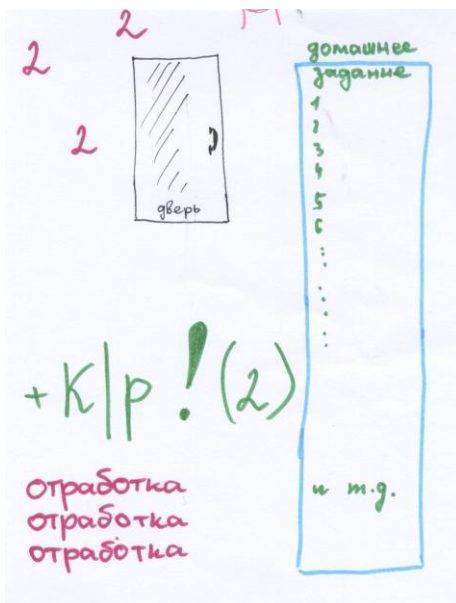 2
2
2
дверь
домашнее
задание
1
2
3
4
5
6
и т.д.
+ К|р ! (2)
отработка
отработка
отработка